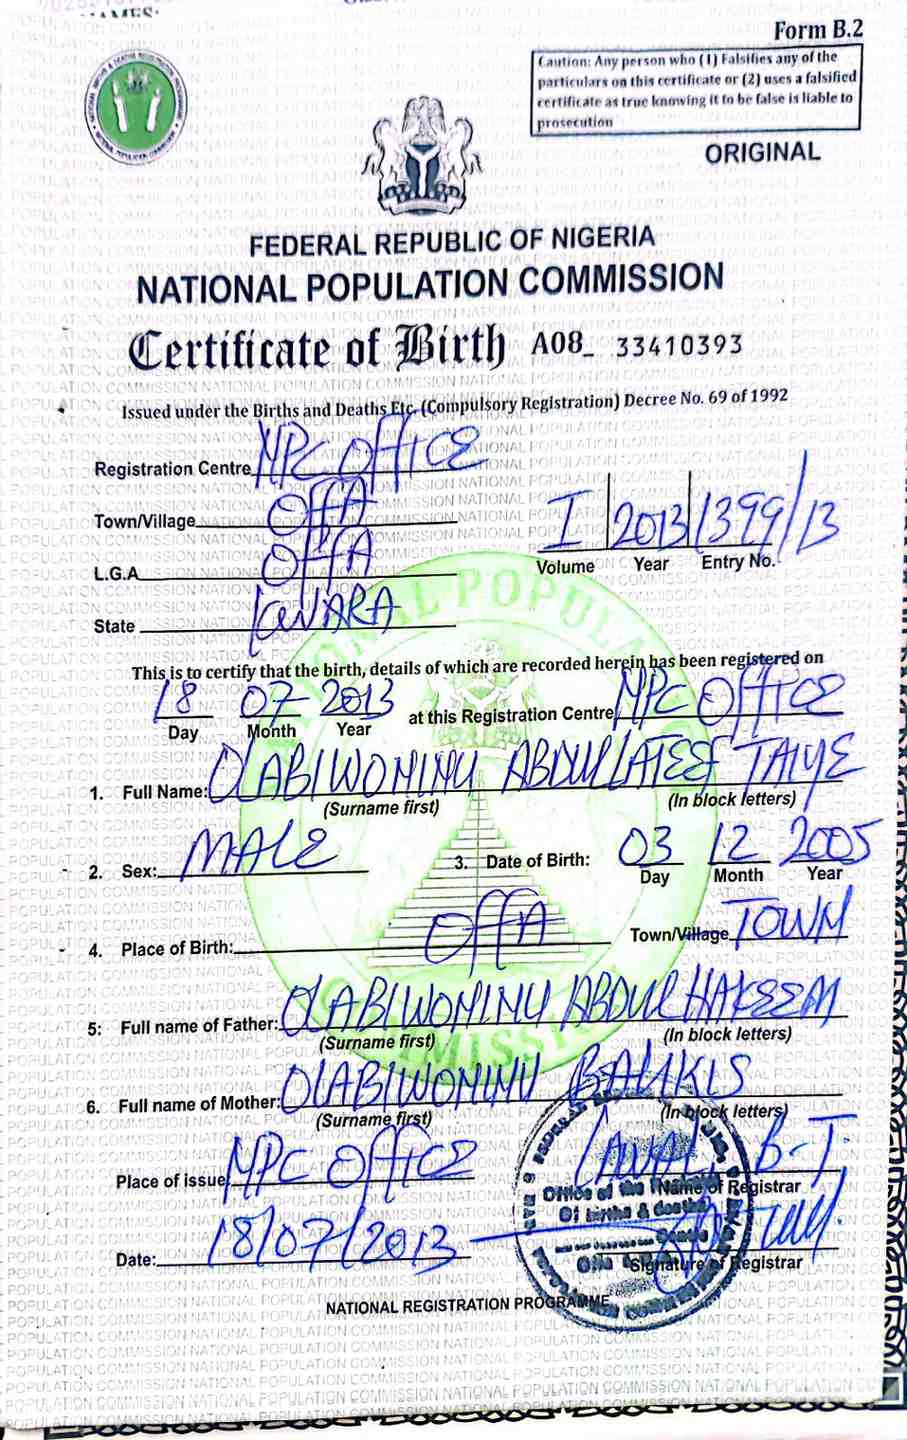 Form B.2
Caution: Any person who (1) Falsifies any of the
particulars on this certificate or (2) uses a falsified
certificate as true knowing it to be false is liable to
prosecution
ORIGINAL
FEDERAL REPUBLIC OF NIGERIA
NATIONAL POPULATION COMMISSION
Certificate of Birth A08_ 33410393
Issued under the Births and Deaths Etc. (Compulsory Registration) Decree No. 69 of 1992
Registration Centre NPC OFFICE
Town/Village OFFA
L.G.A OFFA
State KWARA
I 2013 1399/13
Volume Year Entry No.
This is to certify that the birth, details of which are recorded herein has been registered on
18 07 2013 at this Registration Centre NPC OFFICE
Day Month Year
1. Full Name: OLABIWONINU ABDULLATEEF TAIYE
(Surname first) (In block letters)
2. Sex: MALE 3. Date of Birth: 03 12 2005
Day Month Year
4. Place of Birth: OFFA Town/Village TOWN
5: Full name of Father: OLABIWONINU ABDULHAKEEM
(Surname first) (In block letters)
6. Full name of Mother: OLABIWONINU BALIKIS
(Surname first) (In block letters)
Place of issue NPC OFFICE LAWAL, B-T.
Name of Registrar
Date: 18/07/2013
Signature of Registrar
Office of the
Of births & deaths
NATIONAL REGISTRATION PROGRAMME